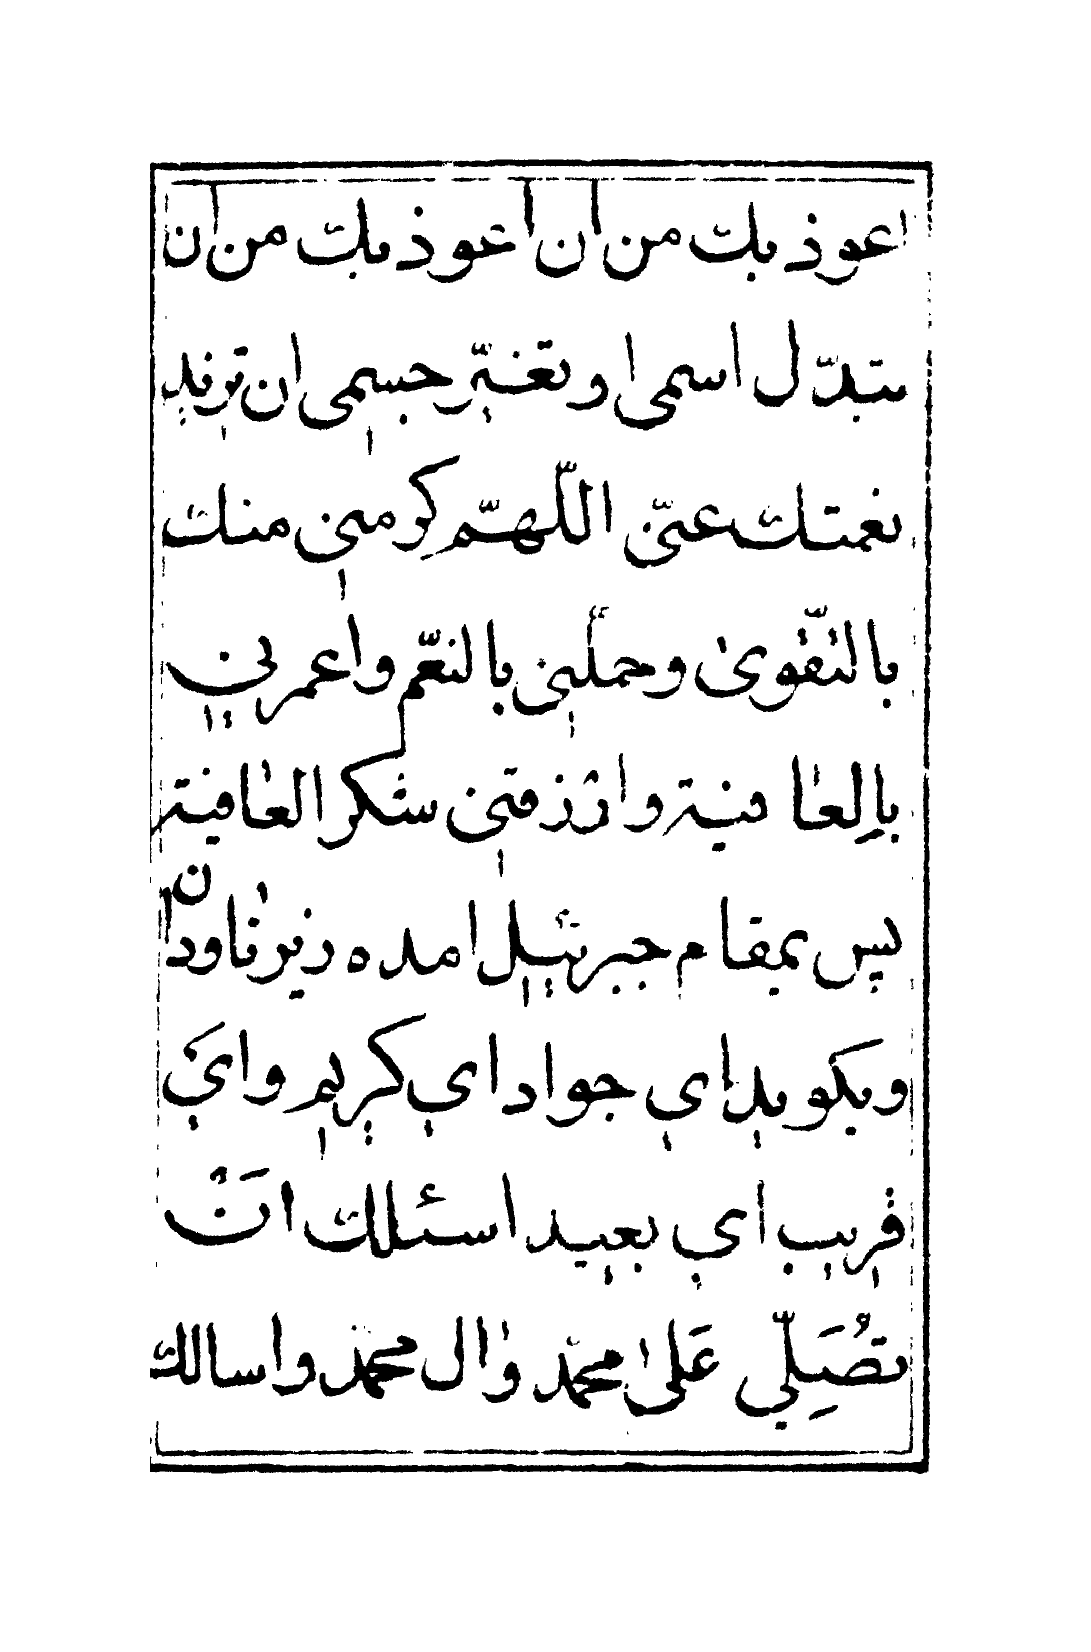 اعوذ بك من ان اعوذ بك من ان
تبدّل اسمى او تغيّر جسمى ان تزيد
نعمتك عنّى اللّهمّ كرمنى منك
بالتّقوىٰ وحملّنى بالنعّم واعمرنى
بالِعٰا فية وارزقنى شكر العٰافية
پس بمقام جبرئيل امده در زير ناودان
وبكويد اى جواد اى كريم و اى
قريب اى بعيد اسئلك انْ
تُصَلِّي عَلىٰ محمّد وٰال محمّد واسالك